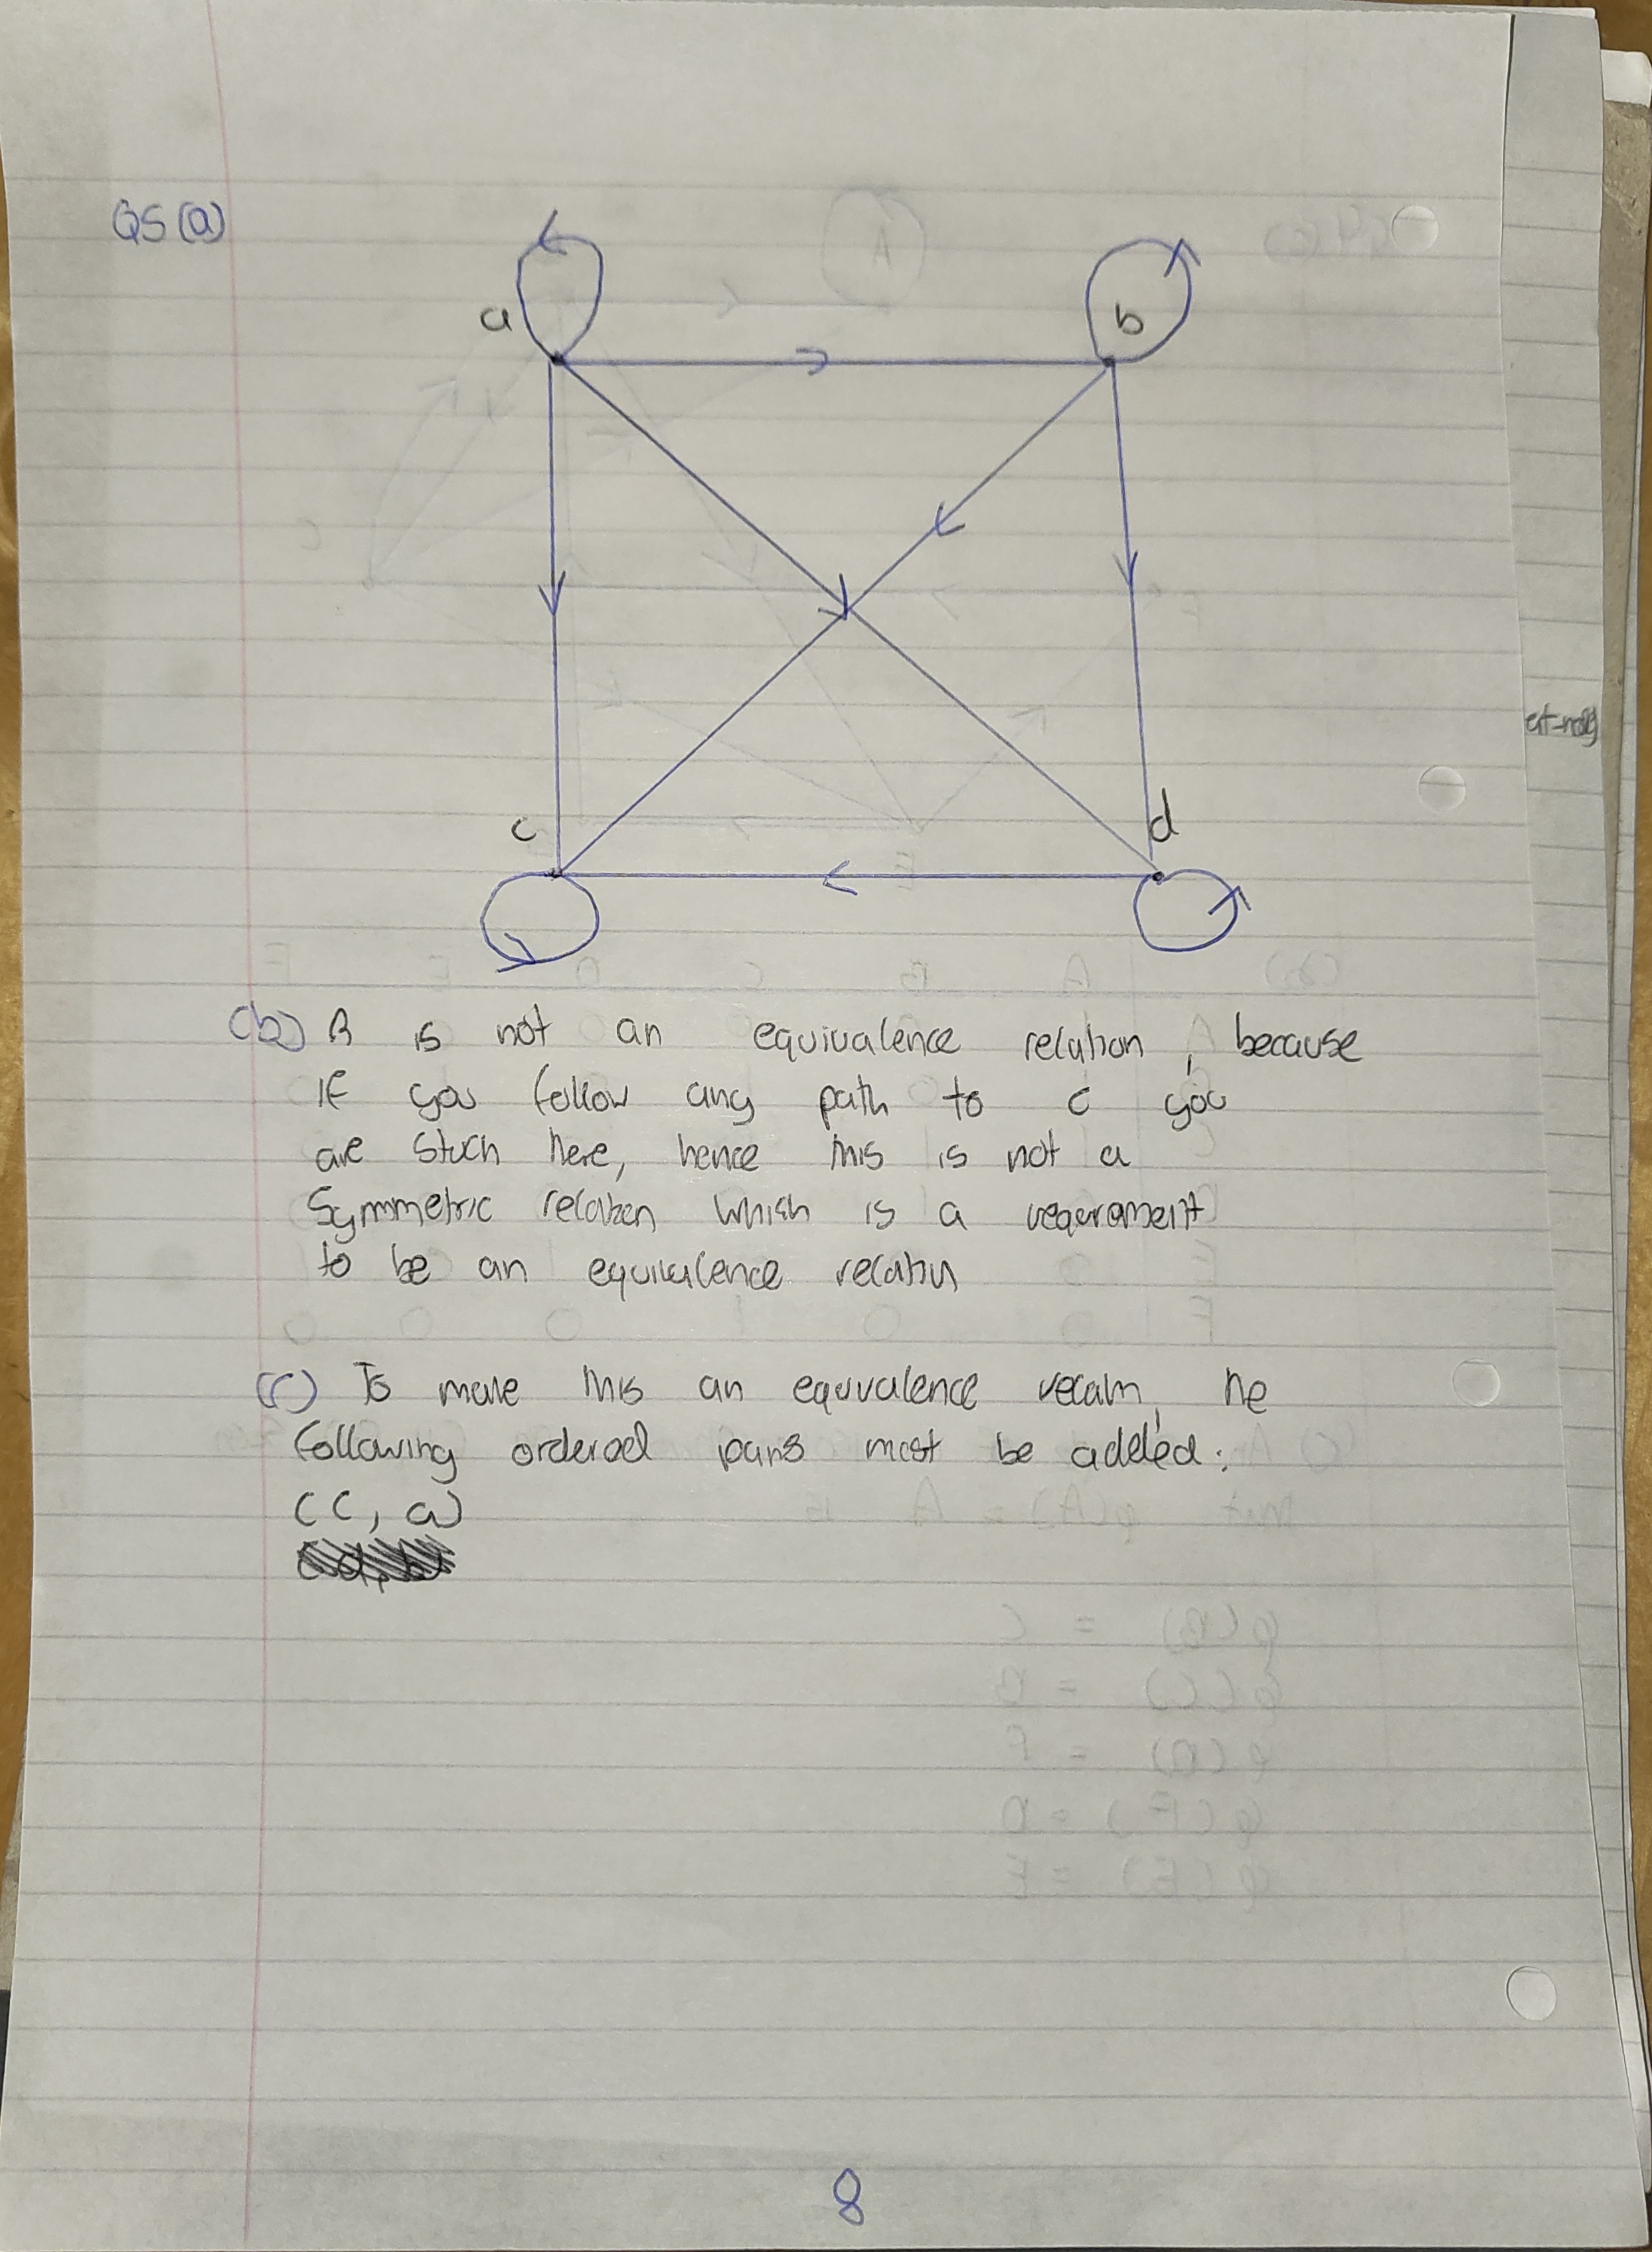 Q5 (a)
a b
c d
(b) R is not an equivalence relation, because
if you follow any path to c you
are stuck here, hence this is not a
Symmetric relation which is a
to be an equivalence
(c) To make this an equivalence the
following ordered pairs must be added:
(c, a)
8